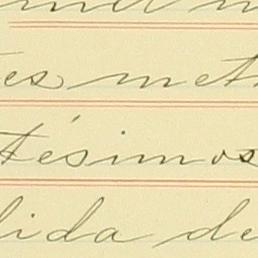 es met
tésimos
lida de